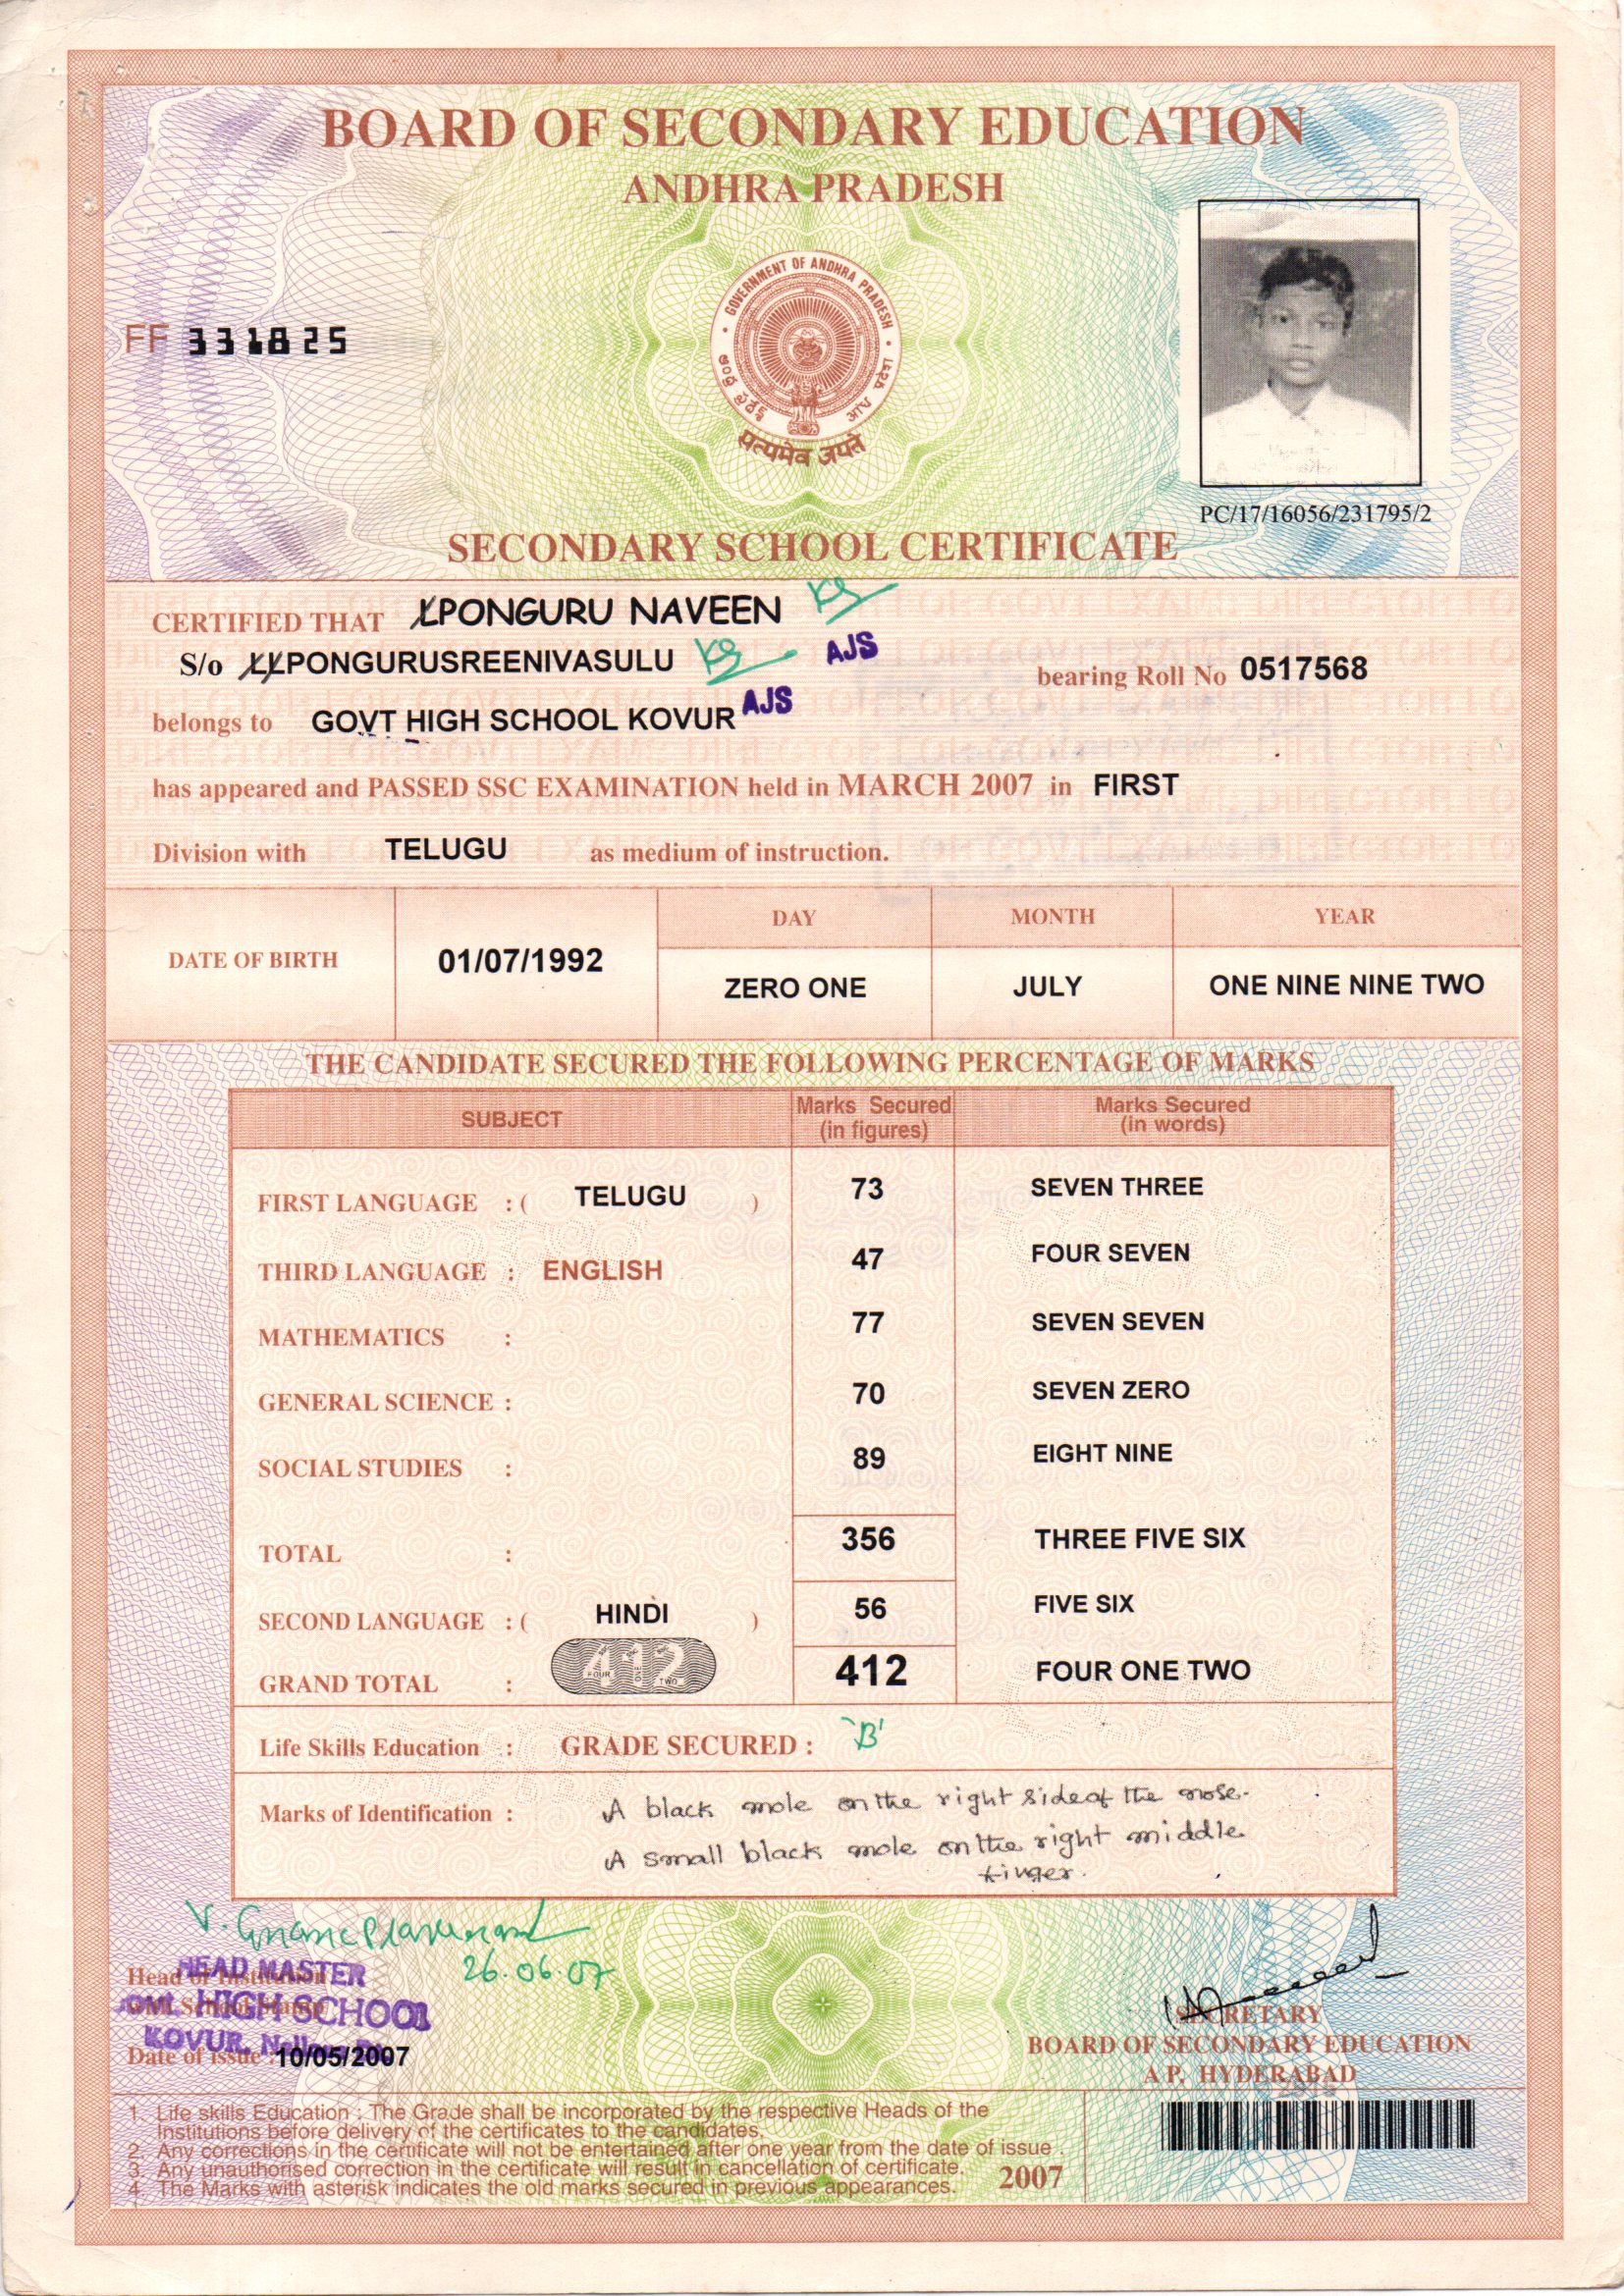 BOARD OF SECONDARY EDUCATION
ANDHRA PRADESH
GOVERNMENT OF ANDHRA PRADESH
सत्यमेव जयते
FF 331825
PC/17/16056/231795/2
SECONDARY SCHOOL CERTIFICATE
CERTIFIED THAT PONGURU NAVEEN
S/o PONGURUSREENIVASULU AJS bearing Roll No 0517568
belongs to GOVT HIGH SCHOOL KOVUR AJS
has appeared and PASSED SSC EXAMINATION held in MARCH 2007 in FIRST
Division with TELUGU as medium of instruction.
DATE OF BIRTH 01/07/1992 DAY MONTH YEAR
ZERO ONE JULY ONE NINE NINE TWO
THE CANDIDATE SECURED THE FOLLOWING PERCENTAGE OF MARKS
SUBJECT Marks Secured (in figures) Marks Secured (in words)
FIRST LANGUAGE : ( TELUGU ) 73 SEVEN THREE
THIRD LANGUAGE : ENGLISH 47 FOUR SEVEN
MATHEMATICS : 77 SEVEN SEVEN
GENERAL SCIENCE : 70 SEVEN ZERO
SOCIAL STUDIES : 89 EIGHT NINE
TOTAL : 356 THREE FIVE SIX
SECOND LANGUAGE : ( HINDI ) 56 FIVE SIX
GRAND TOTAL : 412 FOUR ONE TWO 412 FOUR ONE TWO
Life Skills Education : GRADE SECURED : 'B'
Marks of Identification : A black mole on the right side of the nose.
A small black mole on the right middle
finger.
26.06.07
HEAD MASTER
Head of Institution
HIGH SCHOOL
with School Stamp
KOVUR,
Date of issue : 10/05/2007
SECRETARY
BOARD OF SECONDARY EDUCATION
A P, HYDERABAD
1. Life skills Education : The Grade shall be incorporated by the respective Heads of the
Institutions before delivery of the certificates to the candidates.
2. Any corrections in the certificate will not be entertained after one year from the date of issue .
3. Any unauthorised correction in the certificate will result in cancellation of certificate.
4. The Marks with asterisk indicates the old marks secured in previous appearances.
2007